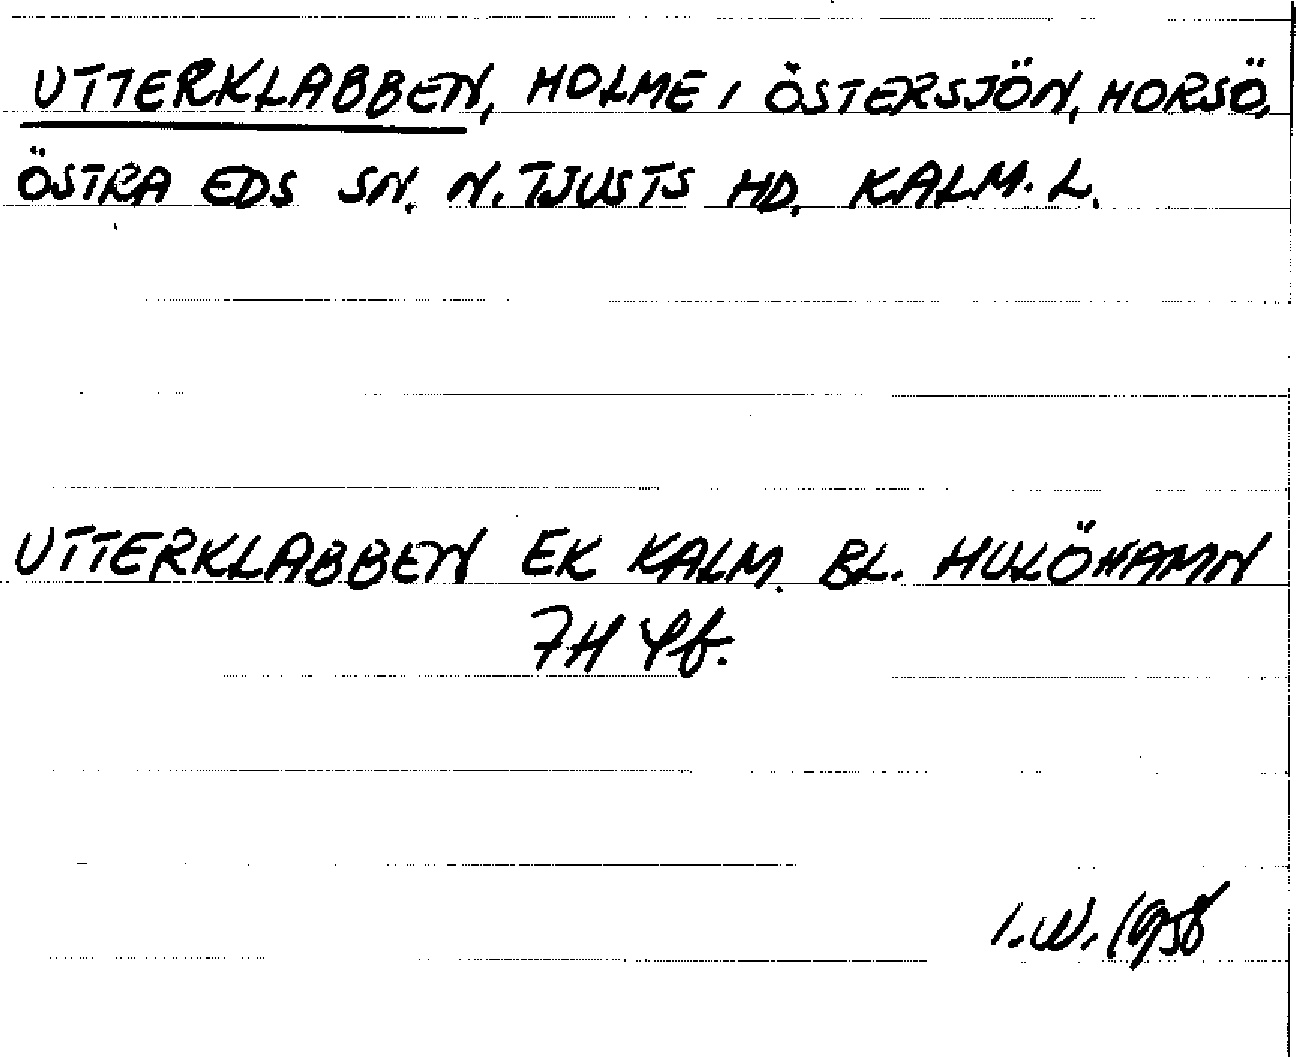 UTTERKLABBEN, HOLME I ÖSTERSJÖN, HORSÖ,
ÖSTRA EDS SN. N. TJUSTS HD. KALM. L.
UTTERKLABBEN EK KALM. BL. HULÖHAMN
7H 4f.
I.W. 1958